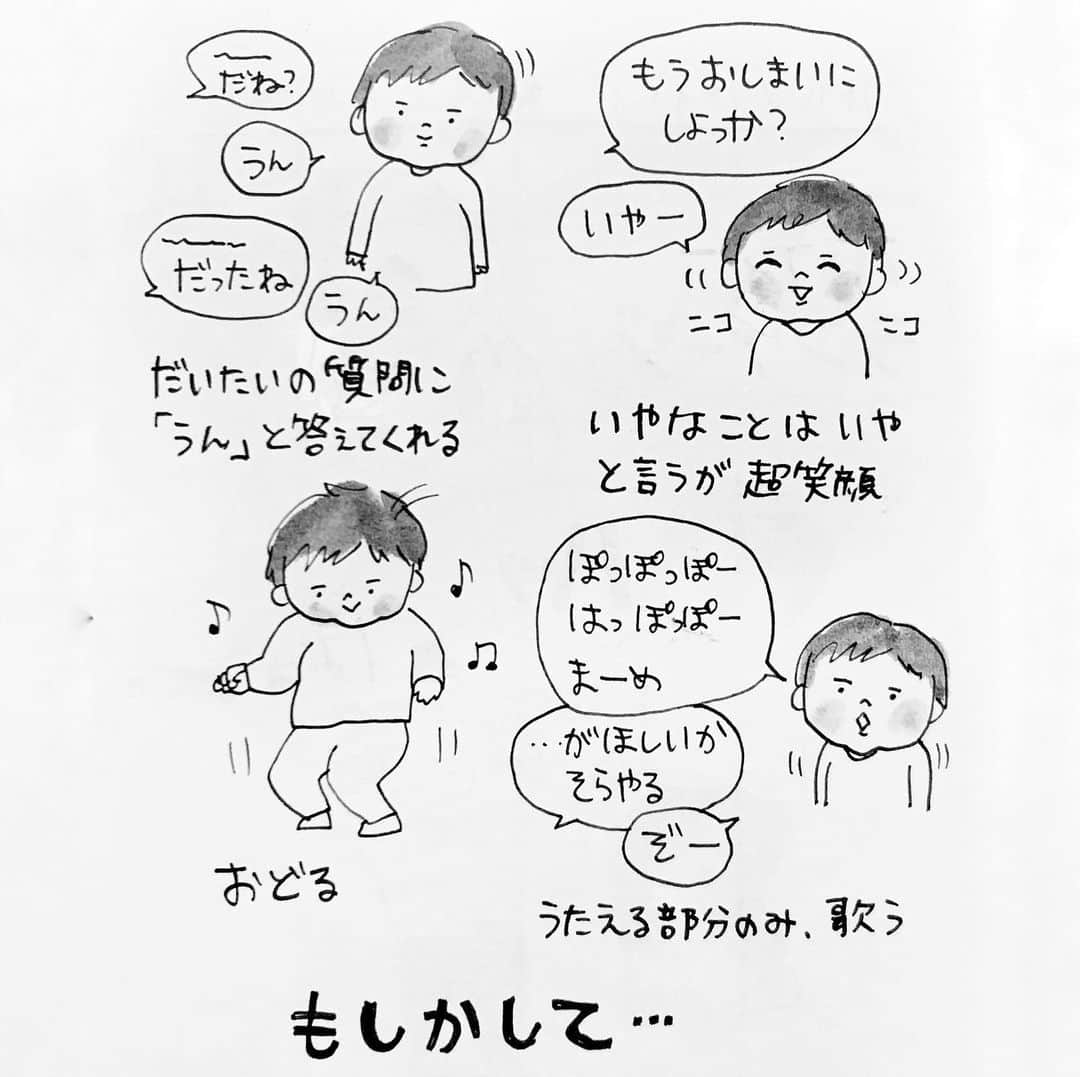 だね?
うん
だったね
うん
だいたいの質問に
「うん」と答えてくれる
もうおしまいに
しよっか?
いやー
ニコ ニコ
いやなことはいや
と言うが超笑顔
おどる
ぽっぽっぽー
はっぽっぽー
まーめ
…がほしいか
そらやる
ぞー
うたえる部分のみ、歌う
もしかして…